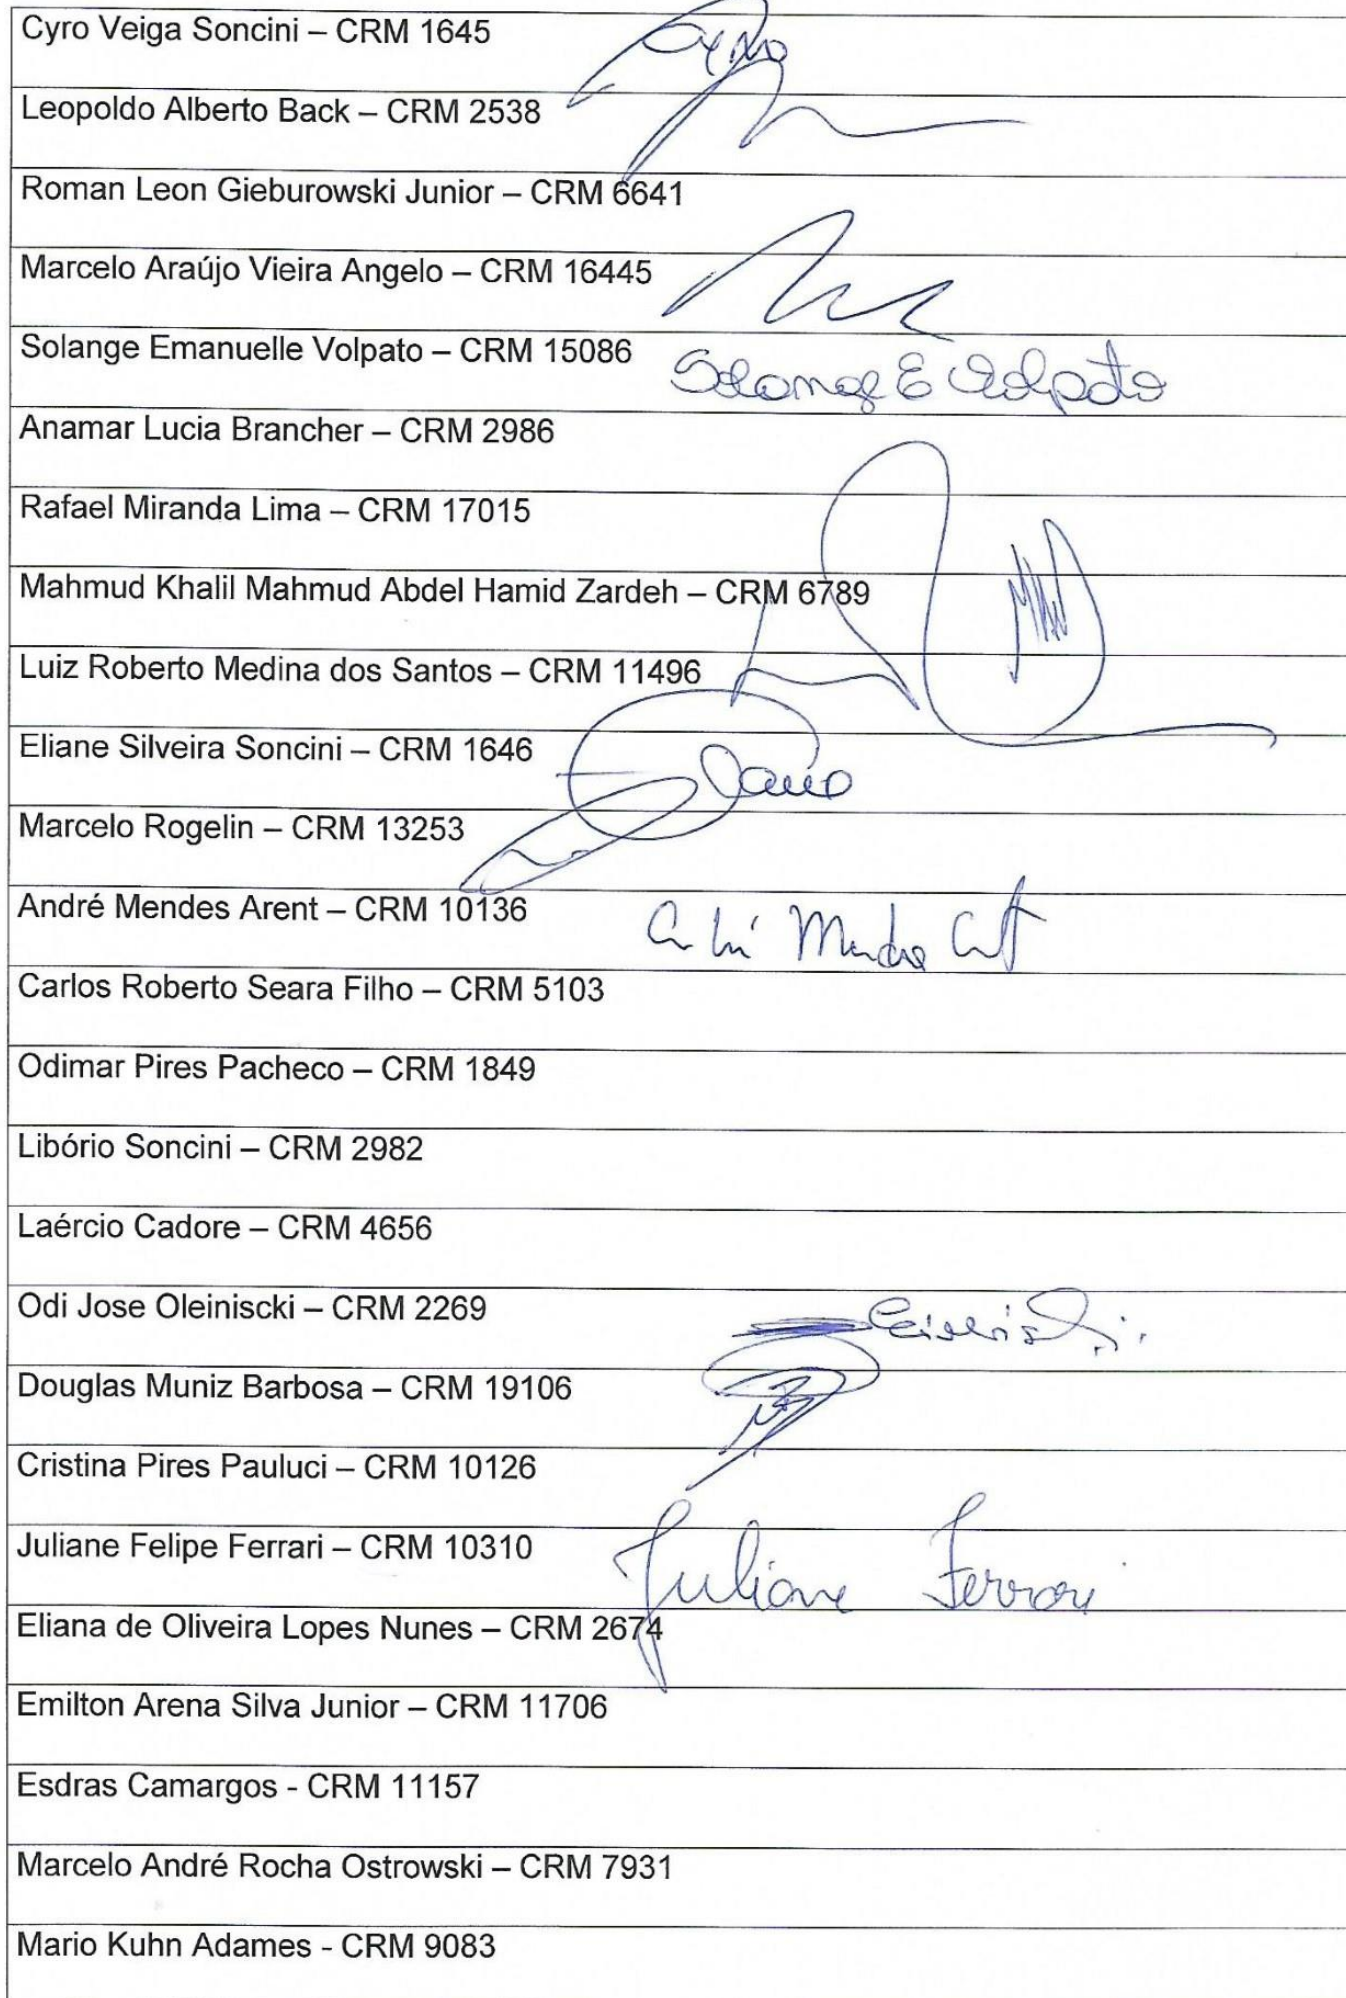 Cyro Veiga Soncini – CRM 1645
Cyro
Leopoldo Alberto Back – CRM 2538
Roman Leon Gieburowski Junior – CRM 6641
Marcelo Araújo Vieira Angelo – CRM 16445
Solange Emanuelle Volpato – CRM 15086
Solange E Volpato
Anamar Lucia Brancher – CRM 2986
Rafael Miranda Lima – CRM 17015
Mahmud Khalil Mahmud Abdel Hamid Zardeh – CRM 6789
Luiz Roberto Medina dos Santos – CRM 11496
Eliane Silveira Soncini – CRM 1646
Marcelo Rogelin – CRM 13253
André Mendes Arent – CRM 10136
Carlos Roberto Seara Filho – CRM 5103
Odimar Pires Pacheco – CRM 1849
Libório Soncini – CRM 2982
Laércio Cadore – CRM 4656
Odi Jose Oleiniscki – CRM 2269
Douglas Muniz Barbosa – CRM 19106
Cristina Pires Pauluci – CRM 10126
Juliane Felipe Ferrari – CRM 10310
Juliane Ferrari
Eliana de Oliveira Lopes Nunes – CRM 2674
Emilton Arena Silva Junior – CRM 11706
Esdras Camargos - CRM 11157
Marcelo André Rocha Ostrowski – CRM 7931
Mario Kuhn Adames - CRM 9083